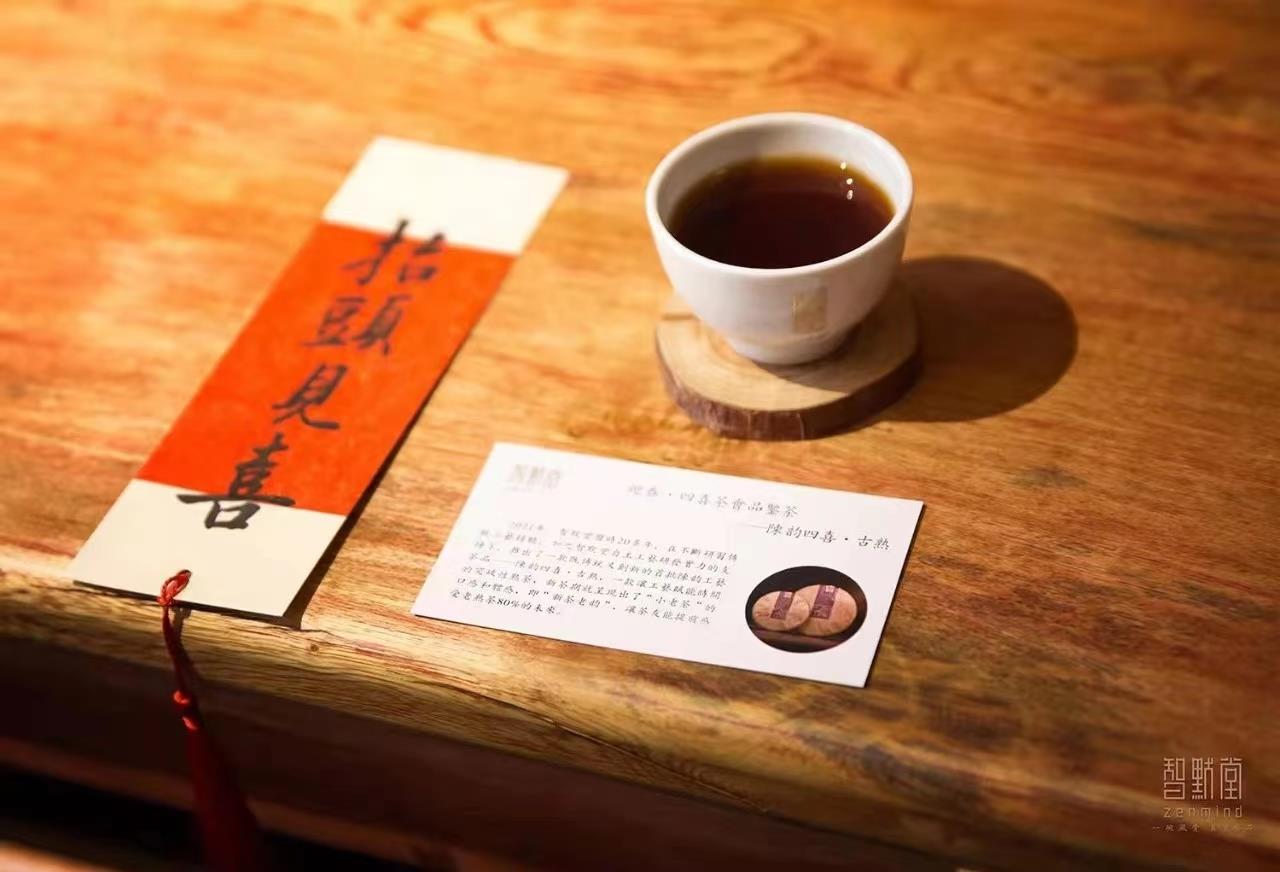 抬頭見喜
智默堂
迎春·四喜茶會品鑒茶
——陳韵四喜·古熟
2021年，智默堂歷時20多年，在不斷研習傳
統工藝
持下，推出了一款既傳統又創新的首批陳韵工藝
茶品——陳韵四喜·古熟，一款讓工藝賦能時間
的突破性熟茶，新茶期就呈現出了“小老茶”的
口感和體感，即“新茶老韵”，讓茶友能提前感
受老熟茶80%的未來。
智默堂
zenmind